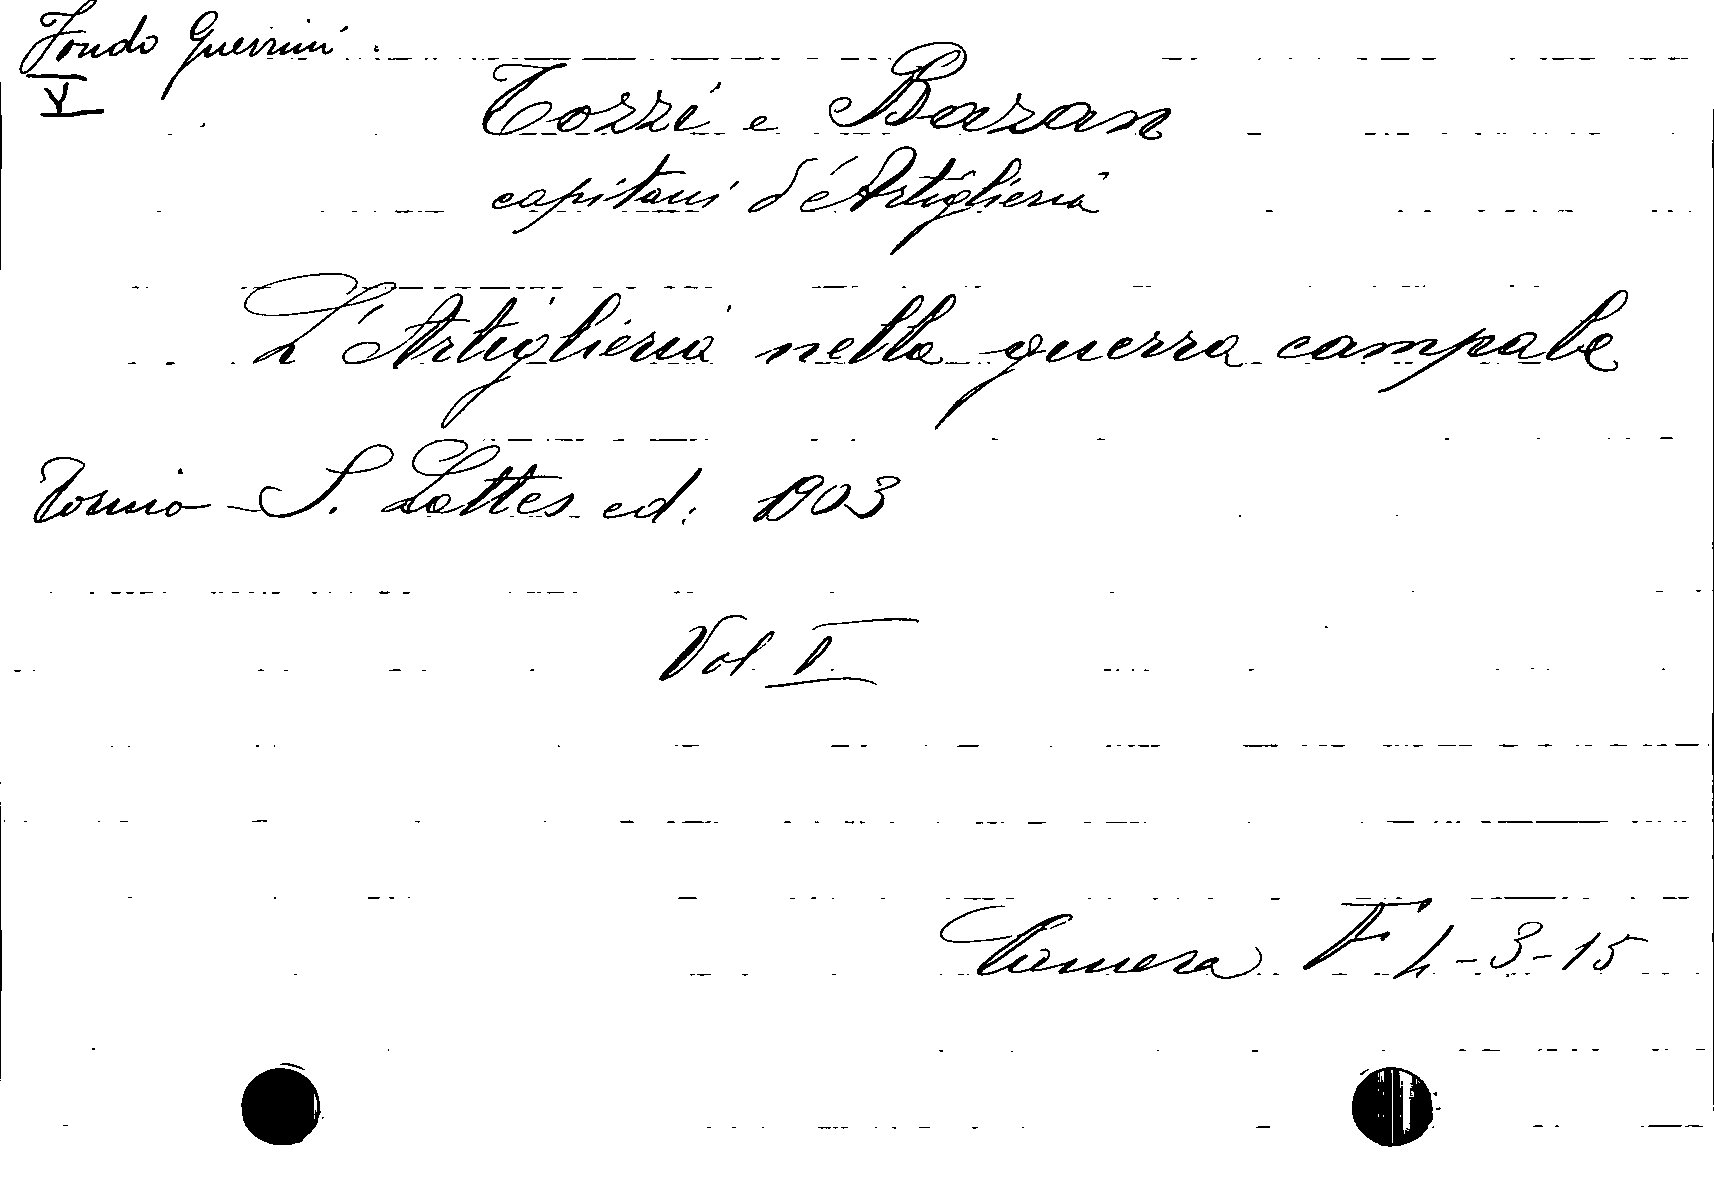 Fondo Guerrini.
V
Tozzi e Bazan
capitani d'Artiglieria
L'Artiglieria nella guerra campale
Torino - S. Lattes ed: 1903
Vol. I
Camera F 4-3-15